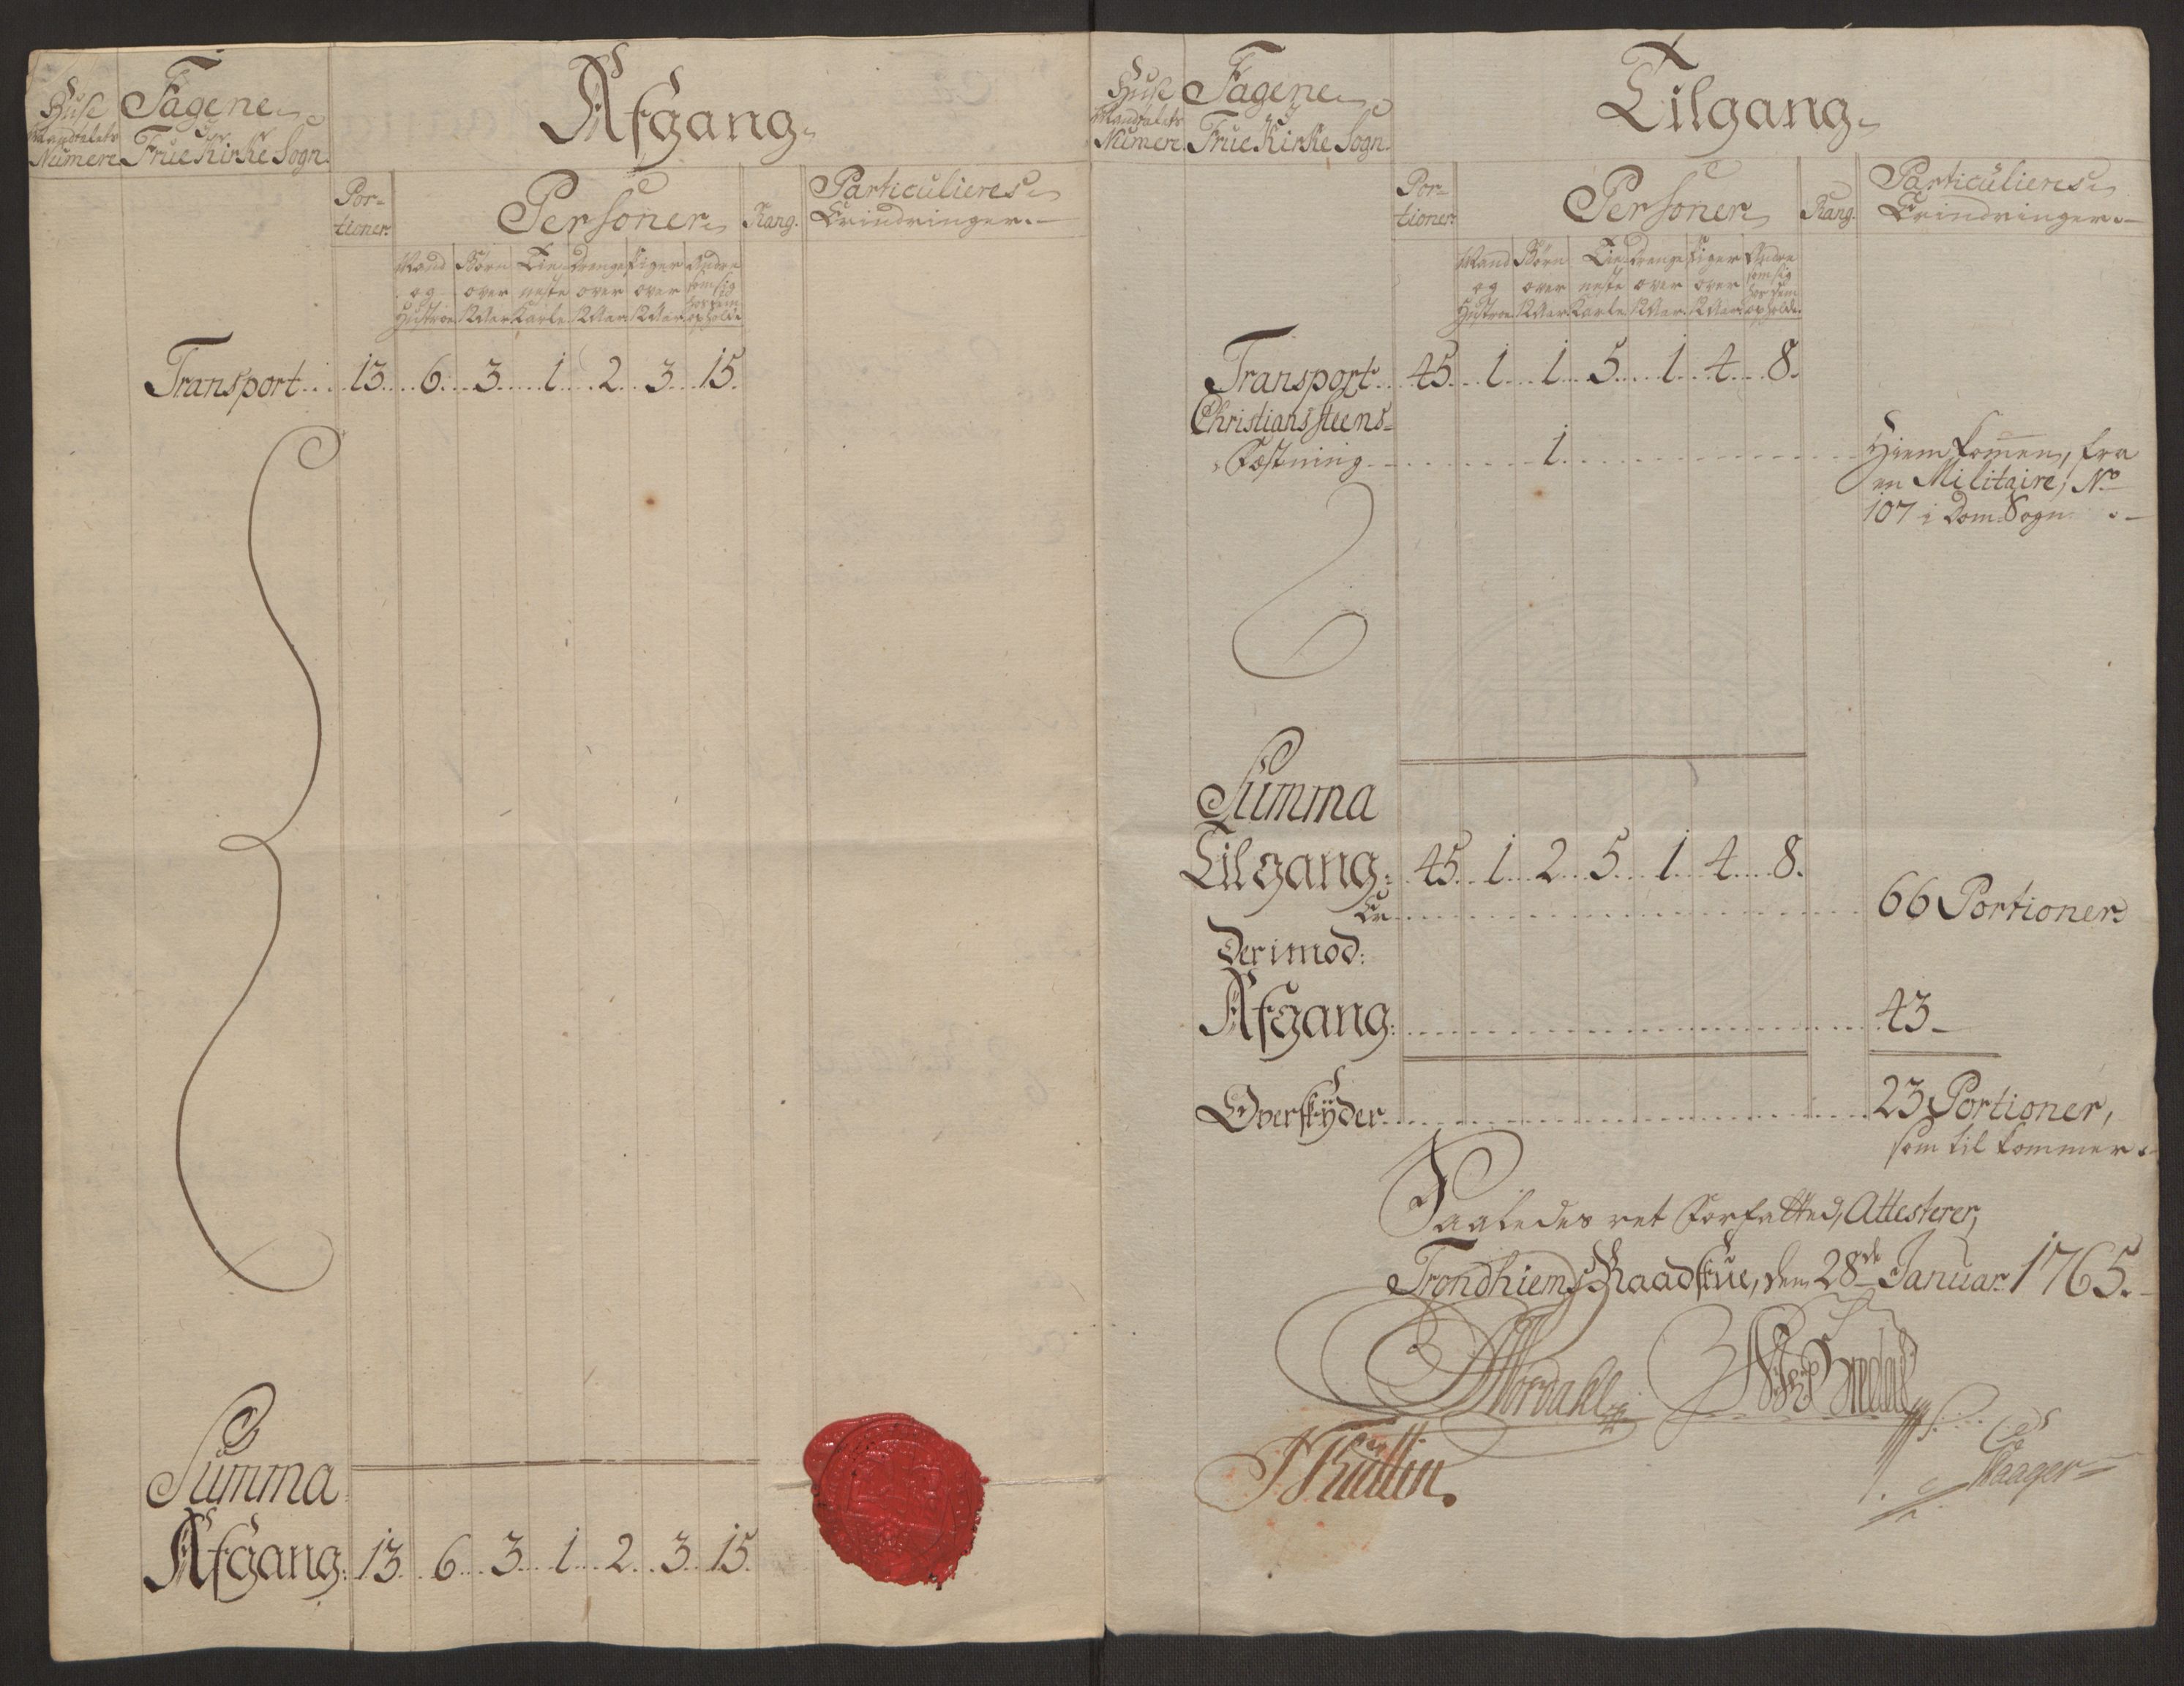 Huse
Mandtalets
Numere
Tagene
i
Frue Kirke Sogn.
Afgang.
Por-
tioner.
Personer
Rang.
Particulieres
Erindringer.
Mand og Hustroe
Børn over 12 Aar
Tieneste Karle
Drenge over 12 Aar
Piger over 12 Aar
Andre som sig hos dem opholde
Transport... 13. 6. 3. 1. 2. 3. 15.
Summa
Afgang: 13. 6. 3. 1. 2. 3. 15.
Huse
Mandtalets
Numere
Tagene
i
Frue Kirke Sogn.
Tilgang.
Por-
tioner.
Personer
Rang.
Particulieres
Erindringer.
Mand og Hustroe
Børn over 12 Aar
Tieneste Karle
Drenge over 12 Aar
Piger over 12 Aar
Andre som sig hos dem opholde
Transport.. 45. 1. 1. 5. 1. 4. 8.
Christianssteens-
Fæstning 1. Hiemkommen, fra
en Militaire, No
107 i Dom Sogn.
Summa
Tilgang: 45. 1. 2. 5. 1. 4. 8.
Er 66 Portioner
Derimod:
Afgang: 43
Overskyder 23 Portioner,
som tilkommer.
Saaledes ret Forfatted, Attesterer,
Trondhiems Raadstue, den 28de Januar. 1765.
Nordahl